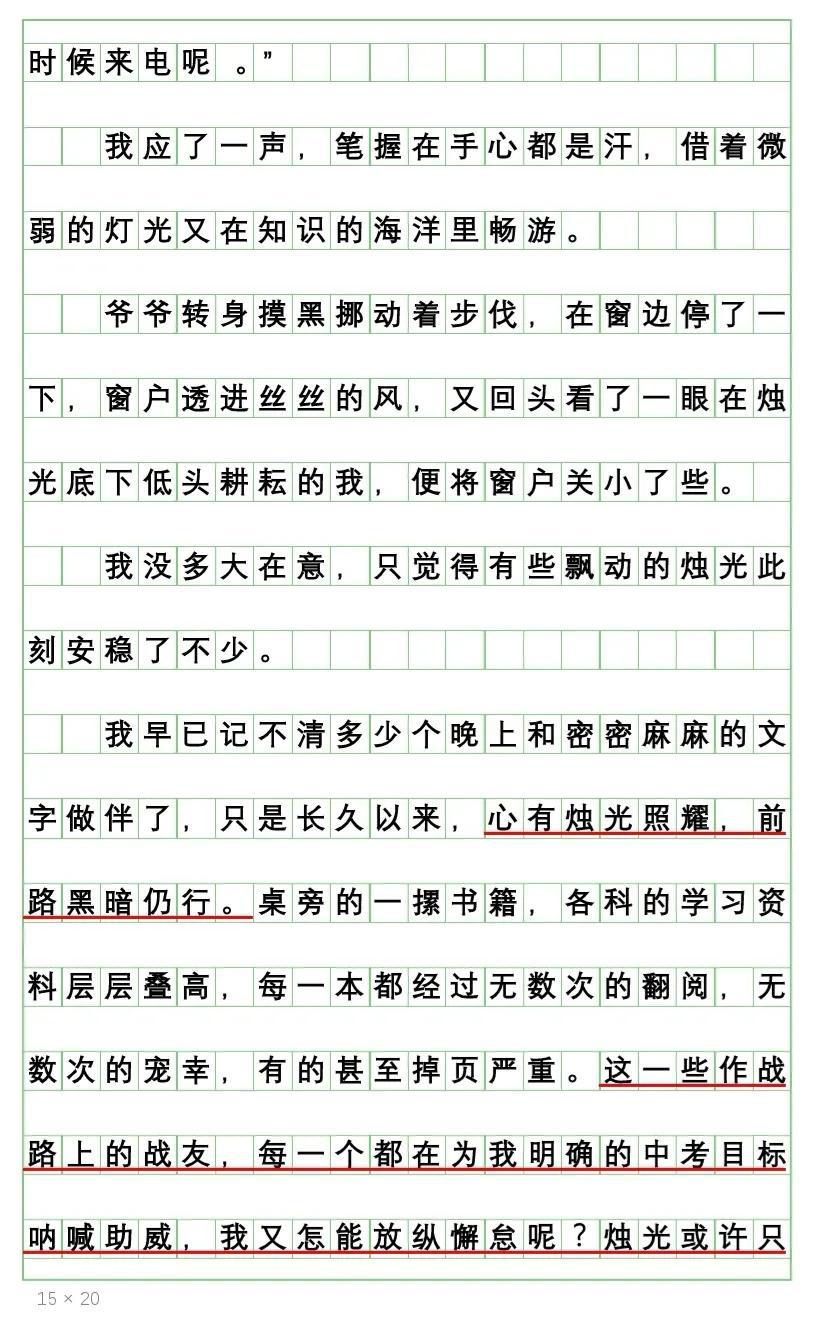 时候来电呢。”
我应了一声，笔握在手心都是汗，借着微
弱的灯光又在知识的海洋里畅游。
爷爷转身摸黑挪动着步伐，在窗边停了一
下，窗户透进丝丝的风，又回头看了一眼在烛
光底下低头耕耘的我，便将窗户关小了些。
我没多大在意，只觉得有些飘动的烛光此
刻安稳了不少。
我早已记不清多少个晚上和密密麻麻的文
字做伴了，只是长久以来，心有烛光照耀，前
路黑暗仍行。桌旁的一摞书籍，各科的学习资
料层层叠高，每一本都经过无数次的翻阅，无
数次的宠幸，有的甚至掉页严重。这一些作战
路上的战友，每一个都在为我明确的中考目标
呐喊助威，我又怎能放纵懈怠呢？烛光或许只
15 × 20